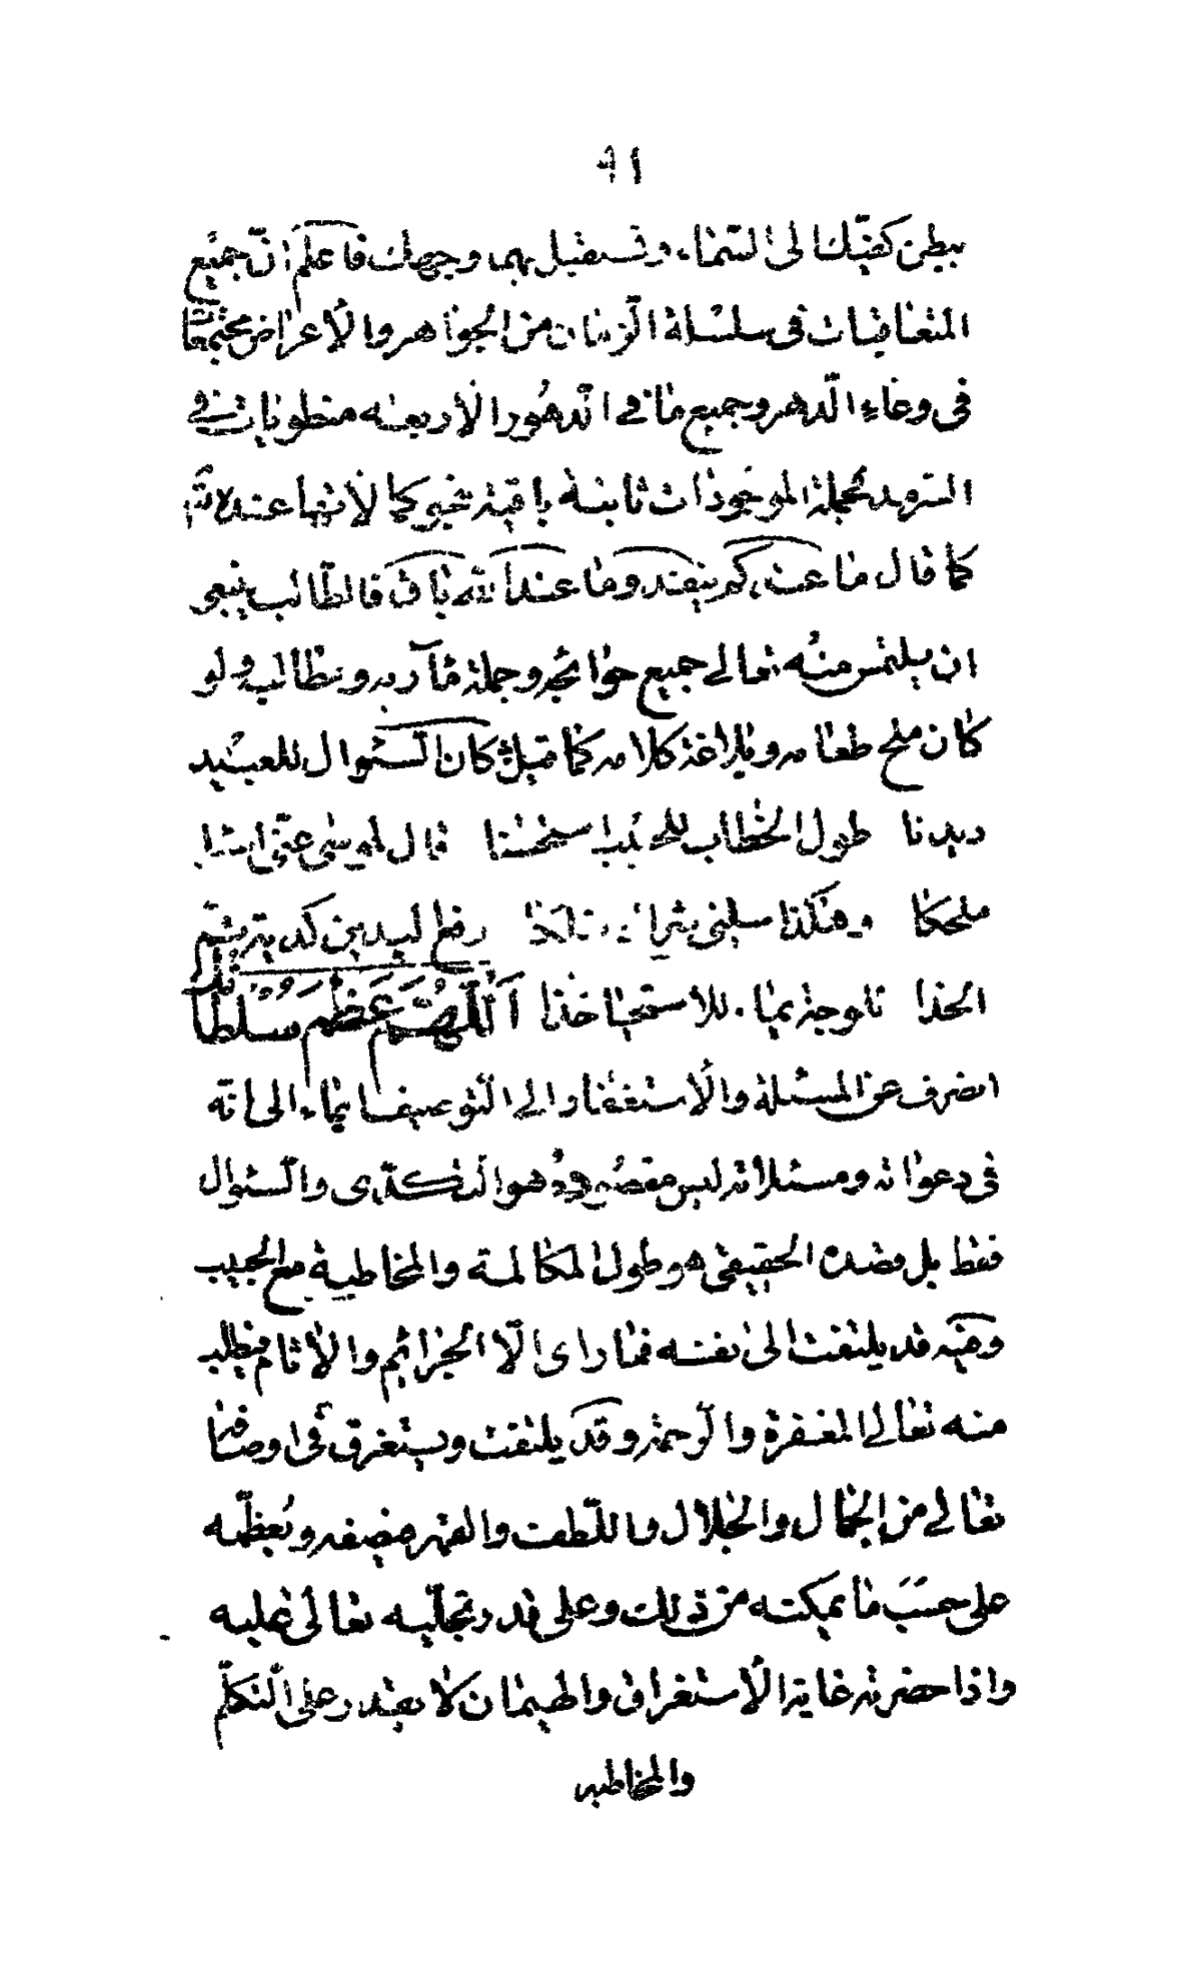 ببطن كفيك الى السماء و تستقبل بهما وجهك فاعلم ان جميع
المتعاقبات فى سلسلة الزمان من الجواهر والأعراض مجتمعات
فى وعاء الدهر وجميع ما فى الدهور الأربعة منطويات فى
السرمد فجملة الموجودات ثابتة باقية لأنها عنده
كما قال ما عندكم ينفد وما عند الله باق فالطالب ينبغى
ان يلتمس منه تعالى جميع حوائجه وجملة مآربه ومطالبه ولو
كان ملح طعامه و كلامه كما قيل كان السئوال للعبيد
ديدنا طول الخطاب للحبيب استحسنا قال لموسى
ملحكا وهكذا سلنى رفع اليدين كديه يشم
الخذا للاستحيا خذا اَللّهُمَّ عَظُمَ سُلْطانُكَ
انصرف عن المسئلة والأستغفار الى التوصيف ايماء الى انه
فى دعواته ومسئلاته ليس مقصوده هو التكدى والسئوال
فقط بل قصده الحقيقى هو طول المكالمة والمخاطبة مع الحبيب
وحينه قد يلتفت الى نفسه فما راى الّا الجرائم والأثام فيطلب
منه تعالى المغفرة والرحمة وقد يلتفت ويستغرق فى اوصافه
تعالى من الجمال والجلال واللّطف والقهر فيصفه ويُعظّمه
على حسَب ما يمكنه من ذلك وعلى قدر تجلّيه تعالى عليه
واذا حضرته غاية الأستغراق والهيمان كلا يقدر على التكلّم
والمخاطبه